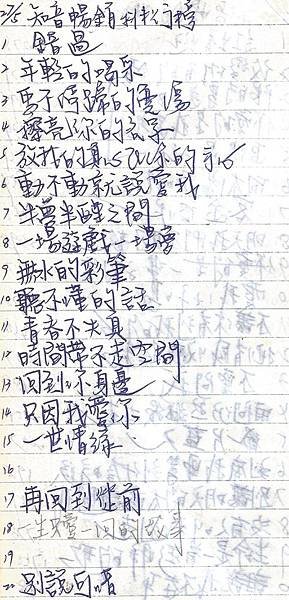 25/5 知音暢銷排行榜
1 錯過
2 年輕的喝采
3 馬不停蹄的憂傷
4 擦亮你的名字
5 放我的真心在你的手心
6 動不動就說愛我
7 半夢半醒之間
8 一場遊戲一場夢
9 無水的彩筆
10 聽不懂的話
11 青春不失真
12 時間帶不走空間
13 回到你身邊
14 只因我愛你
15 一世情緣
16
17 再回到從前
18 一生只愛一回的故事
19
20 別說可惜